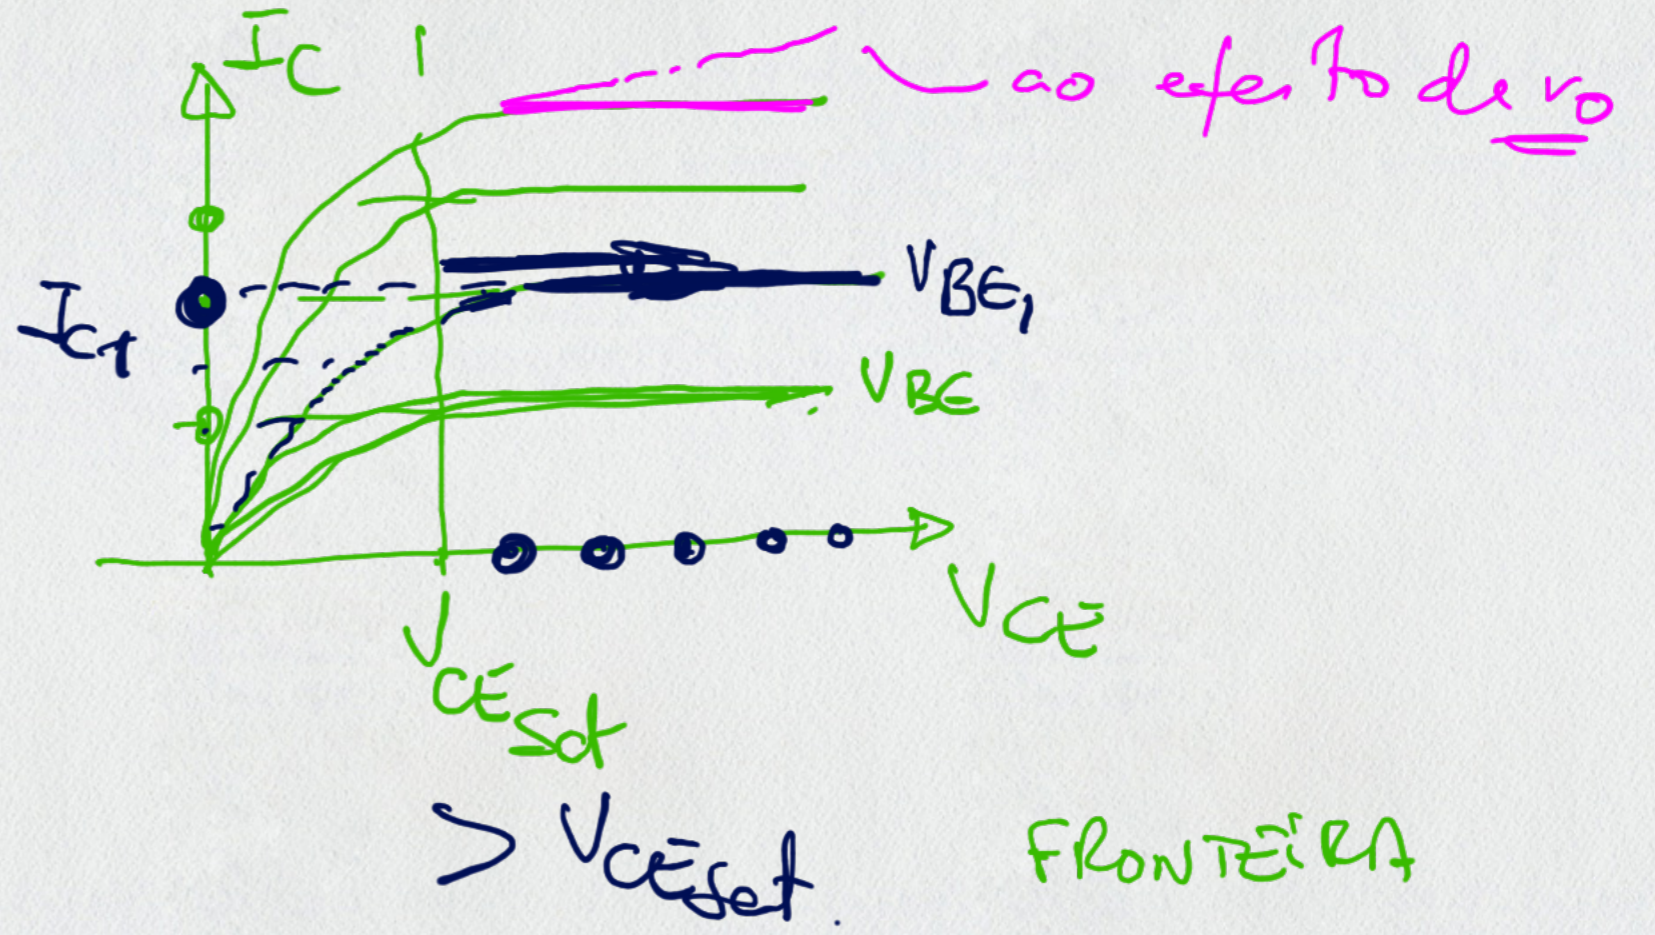 IC
ao efeito de ro
VBE1
IC1
VBE
VCE
VCESat
> VCESat.
FRONTEIRA